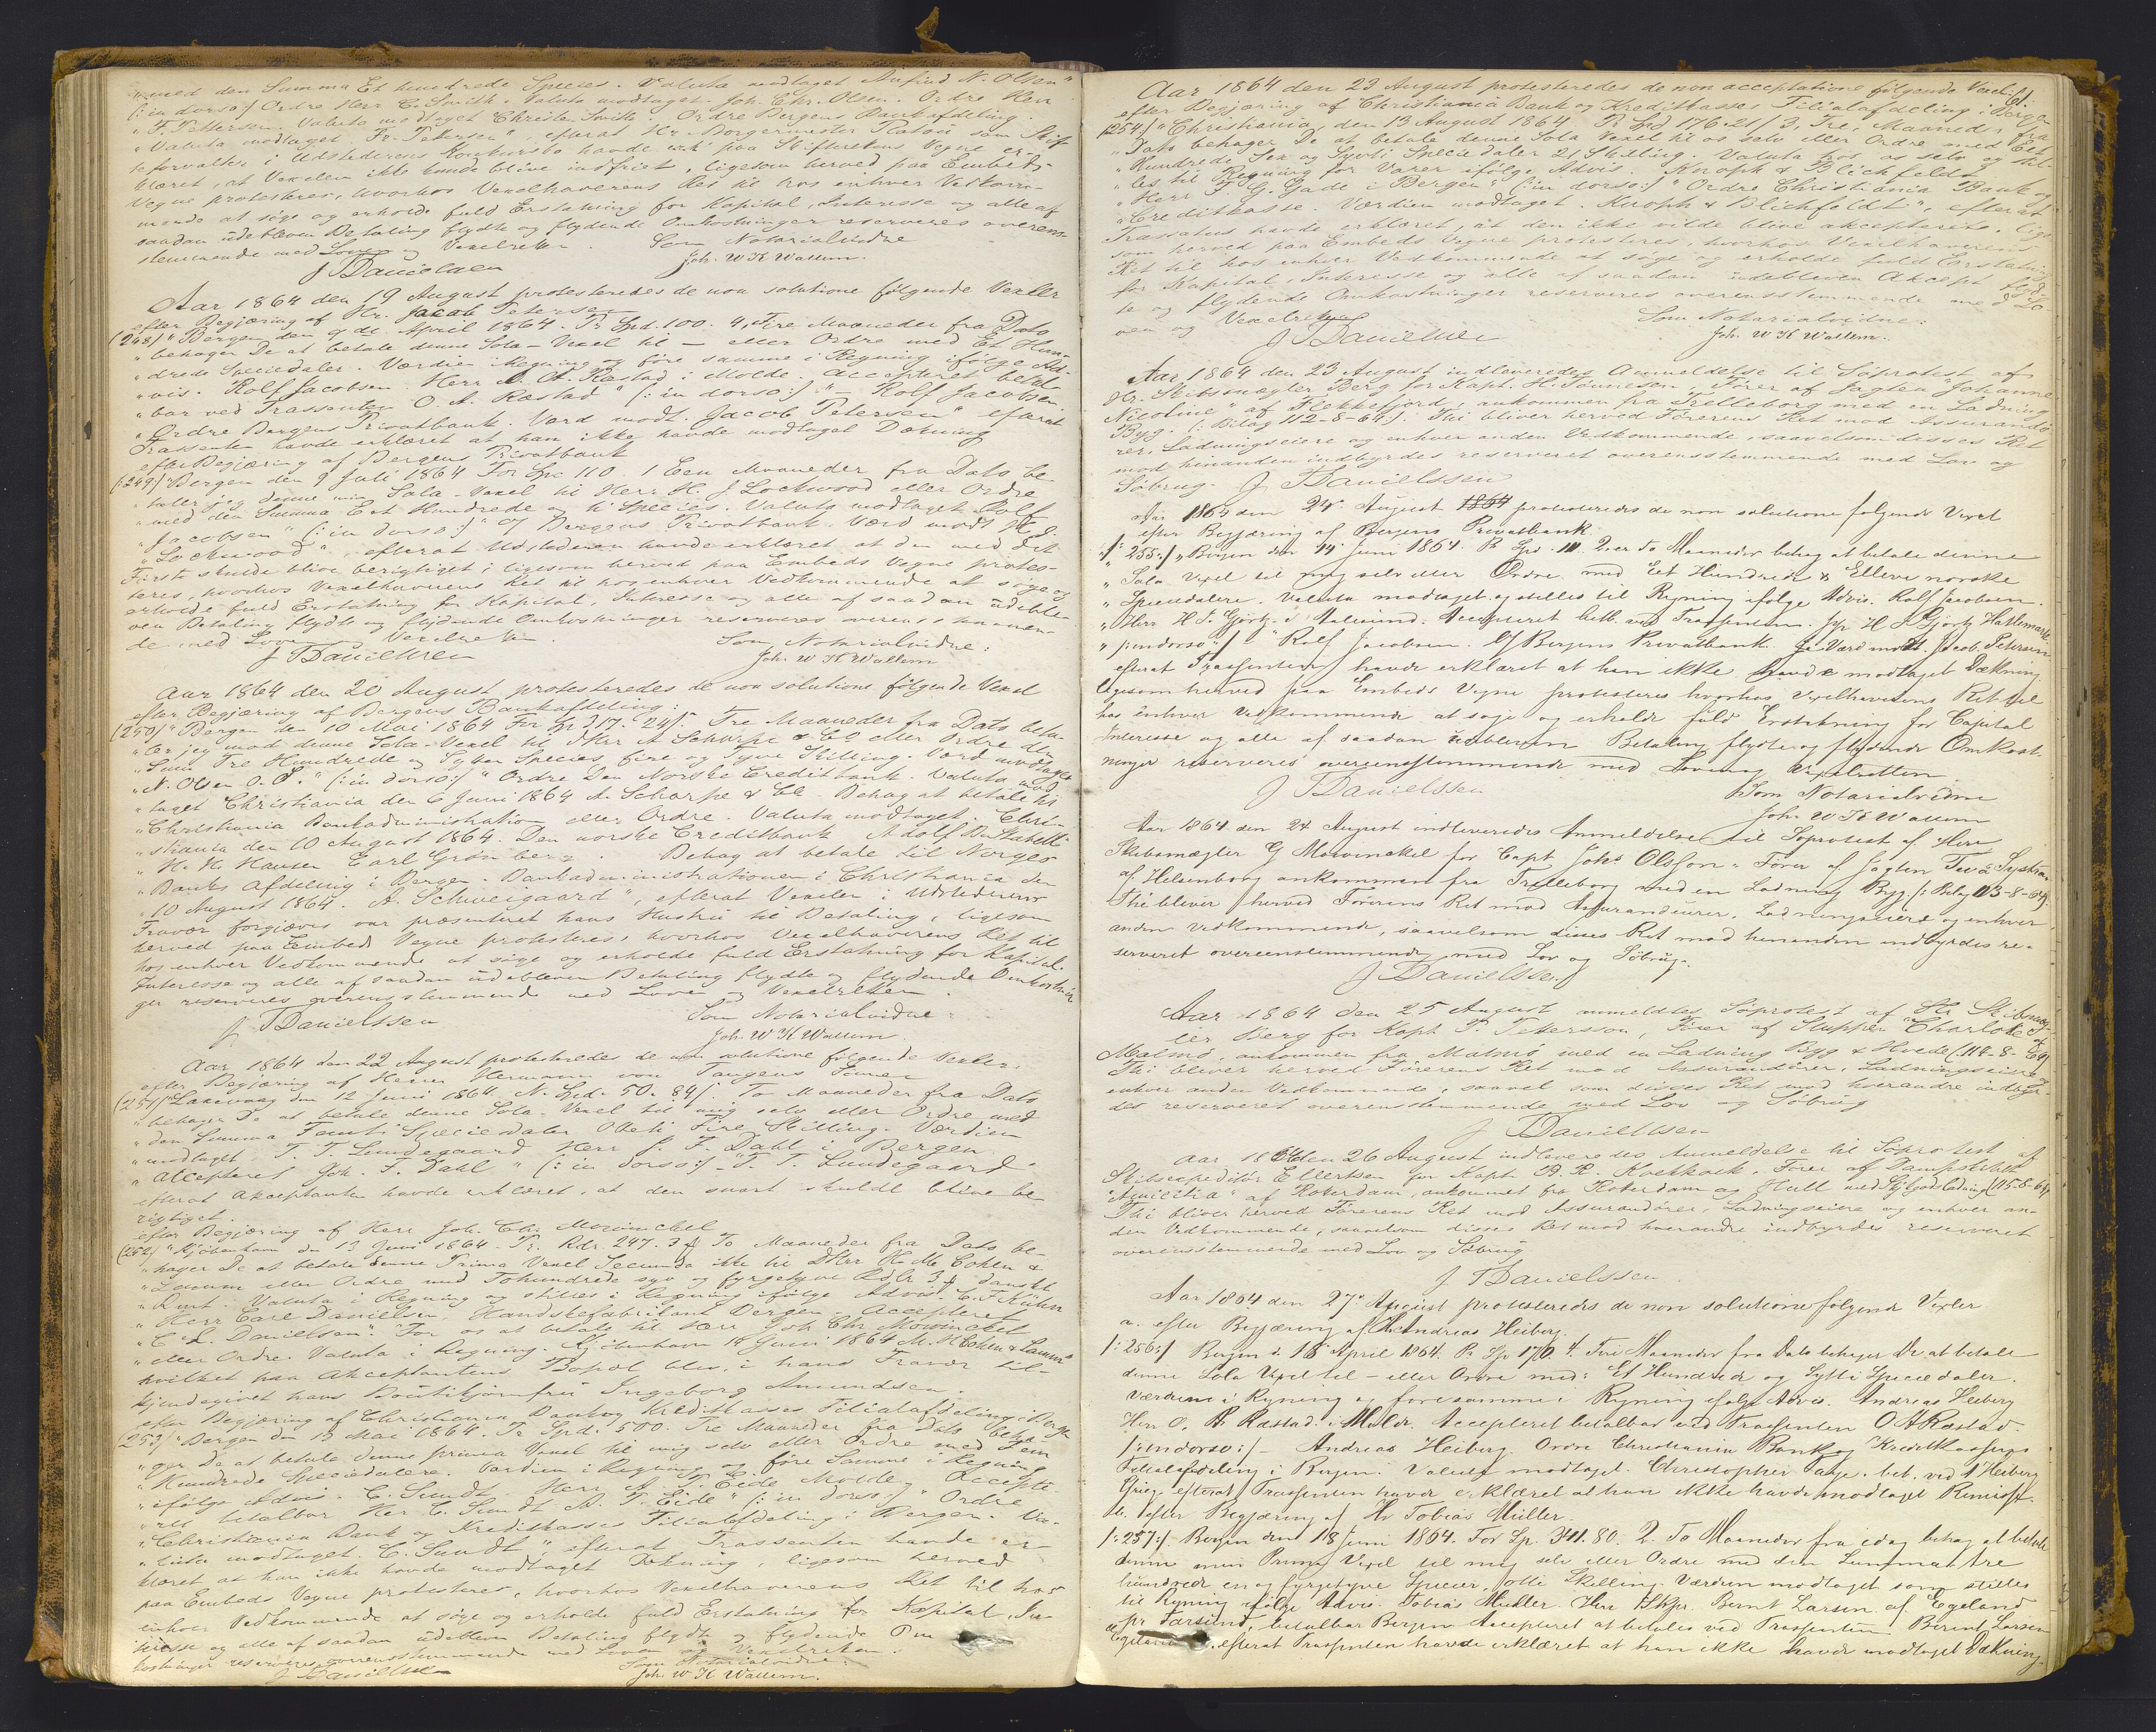 "med den Summa Et hundrede Species. Valuta modtaget Anfind N. Olsen"
(:in dorso:) Ordre Herr C. Smith. Valuta modtaget Joh. Chr. Olsen. Ordre Herr
"F. Pettersen. Valuta modtaget Christen Smith. Ordre Bergens Bankafdeling.
"Valuta modtaget. Fr. Pettersen", efterat Hr. Borgermester Platou som Skif-
teforvalter i Udstederens Konkursbo havde paa Skifterettens Vegne er-
klæret, at Vexelen ikke kunde blive indfriet, ligesom herved paa Embeds
Vegne protesteres, hvorhos Vexelhaverens Ret til hos enhver Vedkom-
mende at søge og erholde fuld Erstatning for Kapital, Interesse og alle af
saadan udebleven Betaling flydte og flydende Omkostninger reserveres overens-
stemmende med Loven Vexelretten. Som Notarialvidne
J Danielssen Joh. W K Wallem.
Aar 1864 den 19 August protesteredes de non solutione følgende Vexler
efter Begjæring af Hr. Jacob Petersen
(248) "Bergen den 9de April 1864. Pr Spd. 100. 4, Fire Maaneder fra Dato
"behager De at betale denne Sola-Vexel til — eller Ordre med Et Hun-
"drede Speciedaler. Værdien i Regning og føre samme i Regning ifølge Ad-
"vis. Rolf Jacobsen. Herr O. A. Ræstad i Molde. Accepteret betal-
"bar ved Trassenten O. A. Ræstad" (:in dorso:) "Rolf Jacobsen
"Ordre Bergens Privatbank. Værd modt. Jacob Petersen" efterat
Trassenten havde erklæret at han ikke havde modtaget Dækning
efter Begjæring af Bergens Privatbank
(:249) "Bergen den 9 Juli 1864 For Sp. 110. 1 Een Maaneder fra Dato be-
"taler jeg denne min Sola-Vexel til Herr H. J Lockwood eller Ordre
"med den Summa Eet Hundrede og ti Species. Valuta modtaget Rolf
"Jacobsen" (:in dorso:) "O/ Bergens Privatbank. Værd modt H. J.
"Lockwood", efterat Udstederen havde erklæret at den med det
Første skulde blive berigtiget; ligesom herved paa Embeds Vegne protes-
teres, hvorhos Vexelhaverens Ret til hos enhver Vedkommende at søge og
erholde fuld Erstatning for Kapital, Interesse og alle af saadan udeble-
ven Betaling flydte og flydende Omkostninger reserveres overensstemmen-
de med Loven og Vexelretten. Som Notarialvidne:
J Danielssen Joh. W K Wallem
Aar 1864 den 20 August protesteredes de non solutione følgende Vexel
efter Begjæring af Bergens Bankafdeling:
(250) "Bergen den 10 Mai 1864 For Sp 317. 24 ß. Tre Maaneder fra Dato beta-
"ler jeg mod denne Sola-Vexel til DHrr A Scharpe & Co eller Ordre den
"Sum Tre Hundrede og Sytten Species fire og Tyve Skilling. Værd modtaget
"N. Olsen O. S." (:in dorso:) "Ordre Den Norske Creditbank. Valuta mod-
"taget Christiania den 6 Juni 1864 A. Scharpe & Co. Behag at betale til
"Christiania Bankadministration eller Ordre. Valuta modtaget. Chri-
"stiania den 10 August 1864. Den norske Creditbank Adolf B. Stabell
"N. H. Hansen Carl Grønberg. Behag at betale til Norges
"Banks Afdeling i Bergen. Bankadministrationen i Christiania den
"10 August 1864. A. Schweigaard", efterat Vexelen i Udstederens
Fravær forgjæves var præsenteret hans Hustru til Betaling, ligesom
herved paa Embeds Vegne protesteres, hvorhos Vexelhaverens Ret til
hos enhver Vedkommende at søge og erholde fuld Erstatning for Kapital,
Interesse og alle af saadan udebleven Betaling flydte og flydende Omkostnin-
ger reserveres overensstemmende med Loven og Vexelretten.
J Danielssen Som Notarialvidne:
Joh. W K Wallem.
Aar 1864 den 22 August protesteredes de non solutione følgende Vexler.
efter Begjæring af Herrer Hermann von Tangens Sønner
(251) "Laxevaag den 12 Juni 1864. N. Spd. 50. 84 ß. To Maaneder fra Dato
"behager De at betale denne Sola-Vexel til mig selv eller Ordre med
"den Summa Femti Speciesdaler Otteti Fire Skilling. Værdien
"modtaget T. T. Lundegaard Herr J. F. Dahl i Bergen
"Accepteret Joh. F. Dahl" (:in dorso:) "T. T. Lundegaard"
efterat Akceptanten havde erklæret, at den snart skulde blive be-
rigtiget.
efter Begjæring af Herr Joh. Chr. Mowinckel
(252) "Kjøbenhavn den 13 Juni 1864. Pr. Rdr. 247. 3 ß To Maaneder fra Dato be-
"hager De at betale denne Prima Vexel Secunda ikke til DHrr H. M. Cohen &
"Laurum eller Ordre med Tohundrede syv og fyrgetyve Rdlr 3 ß danskt
"Rmt. Valuta i Regning og stilles i Regning ifølge Advis. C. F. Kühn
"Herr Carl Danielsen, Handskefabrikant Bergen. Accepteret
"C. L. Danielsen". "For os at betale til Herr Joh. Chr Mowinckel
"eller Ordre. Valuta i Regning. Kjøbenhavn 18 Juni 1864 M. H Cohen & Laurum"
hvilket paa Akceptantens Bopæl blev, i hans Fravær til-
kjendegivet hans Bestistjørnfrue Ingeborg Amundsen.
efter Begjæring af Christiania Bank og Kreditkasses Filialafdeling i Bergen
(253) "Bergen den 13 Mai 1864. Pr Spd. 500. Tre Maaneder fra Dato beha-
"ger De at betale denne prima Vexel til mig selv eller Ordre med Fem
"Hundrede Speciedalere. Værdien i Regning og føre Samme i Regning
"ifølge Advis. C. Sundt. Herr A. T. Eide Molde. Accepte-
"ret betalbar Her C. Sundt A. T. Eide" (:in dorso:) "Ordre
"Christiania Bank og Kreditkasses Filialafdeling i Bergen. Va-
"luta modtaget. C. Sundt" efterat Trassenten havde er-
klæret at han ikke havde modtaget Dækning, ligesom herved
paa Embeds Vegne protesteres, hvorhos Vexelhaverens Ret til hos
enhver Vedkommende at søge og erholde fuld Erstatning for Kapital, In-
teresse og alle af saadan udebleven Betaling flydte og flydende Om-
kostninger reserveres overensstemmende med Loven og Vexelretten.
J Danielssen Som Notarialvidne:
Joh. W K Wallem.
61.
Aar 1864 den 23 August protesteredes de non acceptatione følgende Vexel
efter Begjæring af Christiania Bank og Kreditkasses Filialafdeling i Bergen
(254) "Christiania, den 13 August 1864 Pr Spd 176. 21 ß 3, Tre, Maaneder fra
"Dato behager De at betale denne Sola Vexel til os selv eller Ordre med Et
"Hundrede Sex og Sytti Specie Daler 21 Skilling. Valuta hos os selv og stil-
"les til Regning for Varer ifølge Advis. Knoph & Blichfeldt
"Herr F. G. Gade i Bergen" (:in dorso:) "Ordre Christiania Bank og
"Creditkasse. Værdien modtaget. Knoph & Blichfeldt", efterat
Trassatus havde erklæret, at den ikke vilde blive akcepteret, lige-
som herved paa Embeds Vegne protesteres, hvorhos Vexelhaverens
Ret til hos enhver Vedkommende at søge og erholde fuld Erstatning
for Kapital, Interesse og alle af saadan udebleven Akcept flyd-
te og flydende Omkostninger reserveres overensstemmende med Lo-
ven og Vexelretten Som Notarialvidne:
J Danielssen Joh. W K Wallem.
Aar 1864 den 23 August indleveredes Anmeldelse til Søprotest af
Hr. Skibsmægler Berg for Kapt. H. Tønnesen, Fører af Jagten "Johanne
Nicoline" af Flekkefjord, ankommen fra Trelleborg med en Ladning
Byg. (: Bilag 112-8-64:). Thi bliver herved Førerens Ret mod Assurandø-
rer, Ladningseiere og enhver anden Vedkommende, saavelsom disses Ret
mod hinanden indbyrdes reserveret overensstemmende med Lov og
Søbrug. J Danielssen
Aar 1864 den 24de August 1864 protesteredes de non solutione følgende Vexel
efter Begjæring af Bergens Privatbank
/: 255:/ "Bergen den 14 Juni 1864. Pr Spd. 111. 2er To Maaneder behag at betale denne
"Sola Vexel til mig selv eller Ordre med Eet Hundrede & Elleve norske
"Speciedalere. Valuta modtaget og stilles til Regning ifølge Advis. Rolf Jacobsen.
"Herr H. P. Gjørtz i Aalesund. Accepteret betb. ved Trassenten. pp H P Gjørtz Hattemark
"/:indorso:/ "Rolf Jacobsen. O/ Bergens Privatbank. Værd modt. Jacob Petersen
efterat Trassenten havde erklæret at han ikke havde modtaget Dækning
ligesom herved paa Embeds Vegne protesteres hvorhos Vexelhaverens Ret til
hos Enhver Vedkommende at søge og erholde fuld Erstatning for Capital
Interesse og alle af saadan udebleven Betaling flydte og flydende Omkost-
ninger reserveres overeensstemmende med Loven og Vexelretten
J Danielssen Som Notarialvidne
Joh. W K Wallem
Aar 1864 den 24 August indleveredes Anmeldelse til Søprotest af Herr
Skibsmægler G Mowinckel for Capt. Johs Olsson - Fører af Jagten Två Systrar
af Helsinborg ankommen fra Trelleborg med en Ladning Byg. (: Bilag 113-8-64).
Thi bliver herved Førerens Ret mod Assurandeurer, Ladningseiere og enhver
anden Vedkommende, saavelsom disses Ret mod hinanden indbyrdes re-
serveret overeensstemmende med Lov og Søbrug.
J Danielssen
Aar 1864 den 25 August anmeldtes Søprotest af Hr Skibsmæg-
ler Berg for Kapt. P. Pettersson, Fører af Sluppen Charlotte af
Malmø, ankommen fra Malmø med en Ladning Byg & Hvede (:114-8-64)
Thi bliver herved Førerens Ret mod Assurandører, Ladningseiere og
enhver anden Vedkommende, saavel som disses Ret mod hverandre indbyr-
des reserveret overensstemmende med Lov og Søbrug
J Danielssen
Aar 1864 den 26 August indleveredes Anmeldelse til Søprotest af
Skibsexpeditør Ellertsen for Kapt. B. R. Koetkoek, Fører af Dampskibet
"Amicitia" af Roterdam, ankommet fra Roterdam og Hull med Stykgods ladning (115-8-64)
Thi bliver herved Førerens Ret mod Assurandører, Ladningseiere og enhver an-
den Vedkommende, saavelsom disses Ret mod hverandre indbyrdes reserveret
overensstemmende med Lov og Søbrug
J Danielssen
Aar 1864 den 27de August protesteredes de non solutione følgende Vexler
a. efter Begjæring af Hr Andreas Heiberg.
/: 256:/ Bergen d. 16 April 1864. Pr. Sp 170. 4. Fire Maaneder fra Dato behager De at betale
denne Sola Vexel til — eller Ordre med: Et Hundrede og Sytti Speciedaler.
Værdien i Regning og føre samme i Regning ifølge Advis. Andreas Heiberg
Herr O. A. Ræstad i Molde. Accepteret betalbar ved Trassenten O A Ræstad.
/:indorso:/ — Andreas Heiberg. Ordre Christiania Bank og Kreditkasses
Filialafdeling i Bergen. Valuta modtaget. Christopher Faye. bet. ved A Heiberg
Grieg efterat Trassenten havde erklæret at han ikke havde modtaget Rimisse.
b. efter Begjæring af Hr Tobias Müller.
/: 257:/ Bergen den 18 Juni 1864. For Sp. 341. 80. 2. To Maaneder fra idag behag at betale
denne min Prima Vexel til mig selv eller Ordre med den Summa Tre
hundrede en og fyrgetyve Species, Otti Skilling. Værdien modtaget som stilles
til Regning ifølge Advis. Tobias Müller. Herr Skpr. Bernt Larsen af Egeland
pr Farsund, betalbar Bergen Accepteret at betales ved Trassenten Berent Larsen
Egeland. efterat Trassenten havde erklæret at han ikke havde modtaget Dækning.